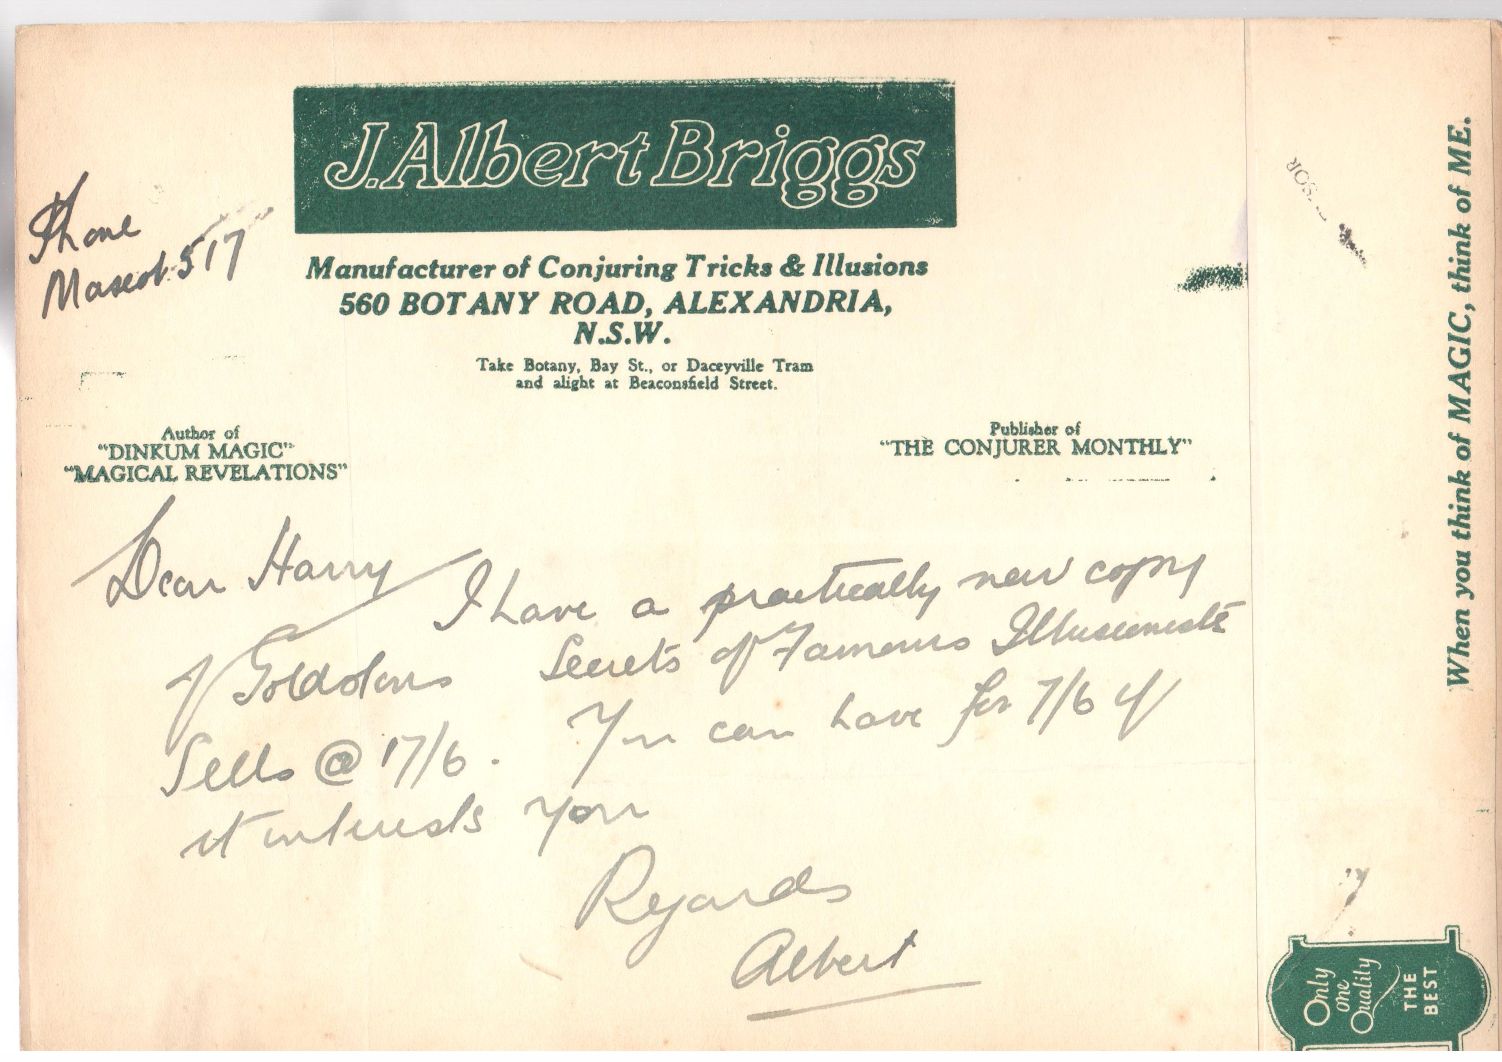 J. Albert Briggs
Manufacturer of Conjuring Tricks & Illusions
560 BOTANY ROAD, ALEXANDRIA,
N.S.W.
Take Botany, Bay St., or Daceyville Tram
and alight at Beaconsfield Street.
Phone
Mascot 517
Author of
"DINKUM MAGIC"
"MAGICAL REVELATIONS"
Publisher of
"THE CONJURER MONTHLY"
Dear Harry
I have a practically new copy
of Goldstons Secrets of Famous Illusionists
Sells @ 17/6. You can have for 7/6 if
it interests you
Regards
Albert
When you think of MAGIC, think of ME.
Only
one
Quality
THE
BEST